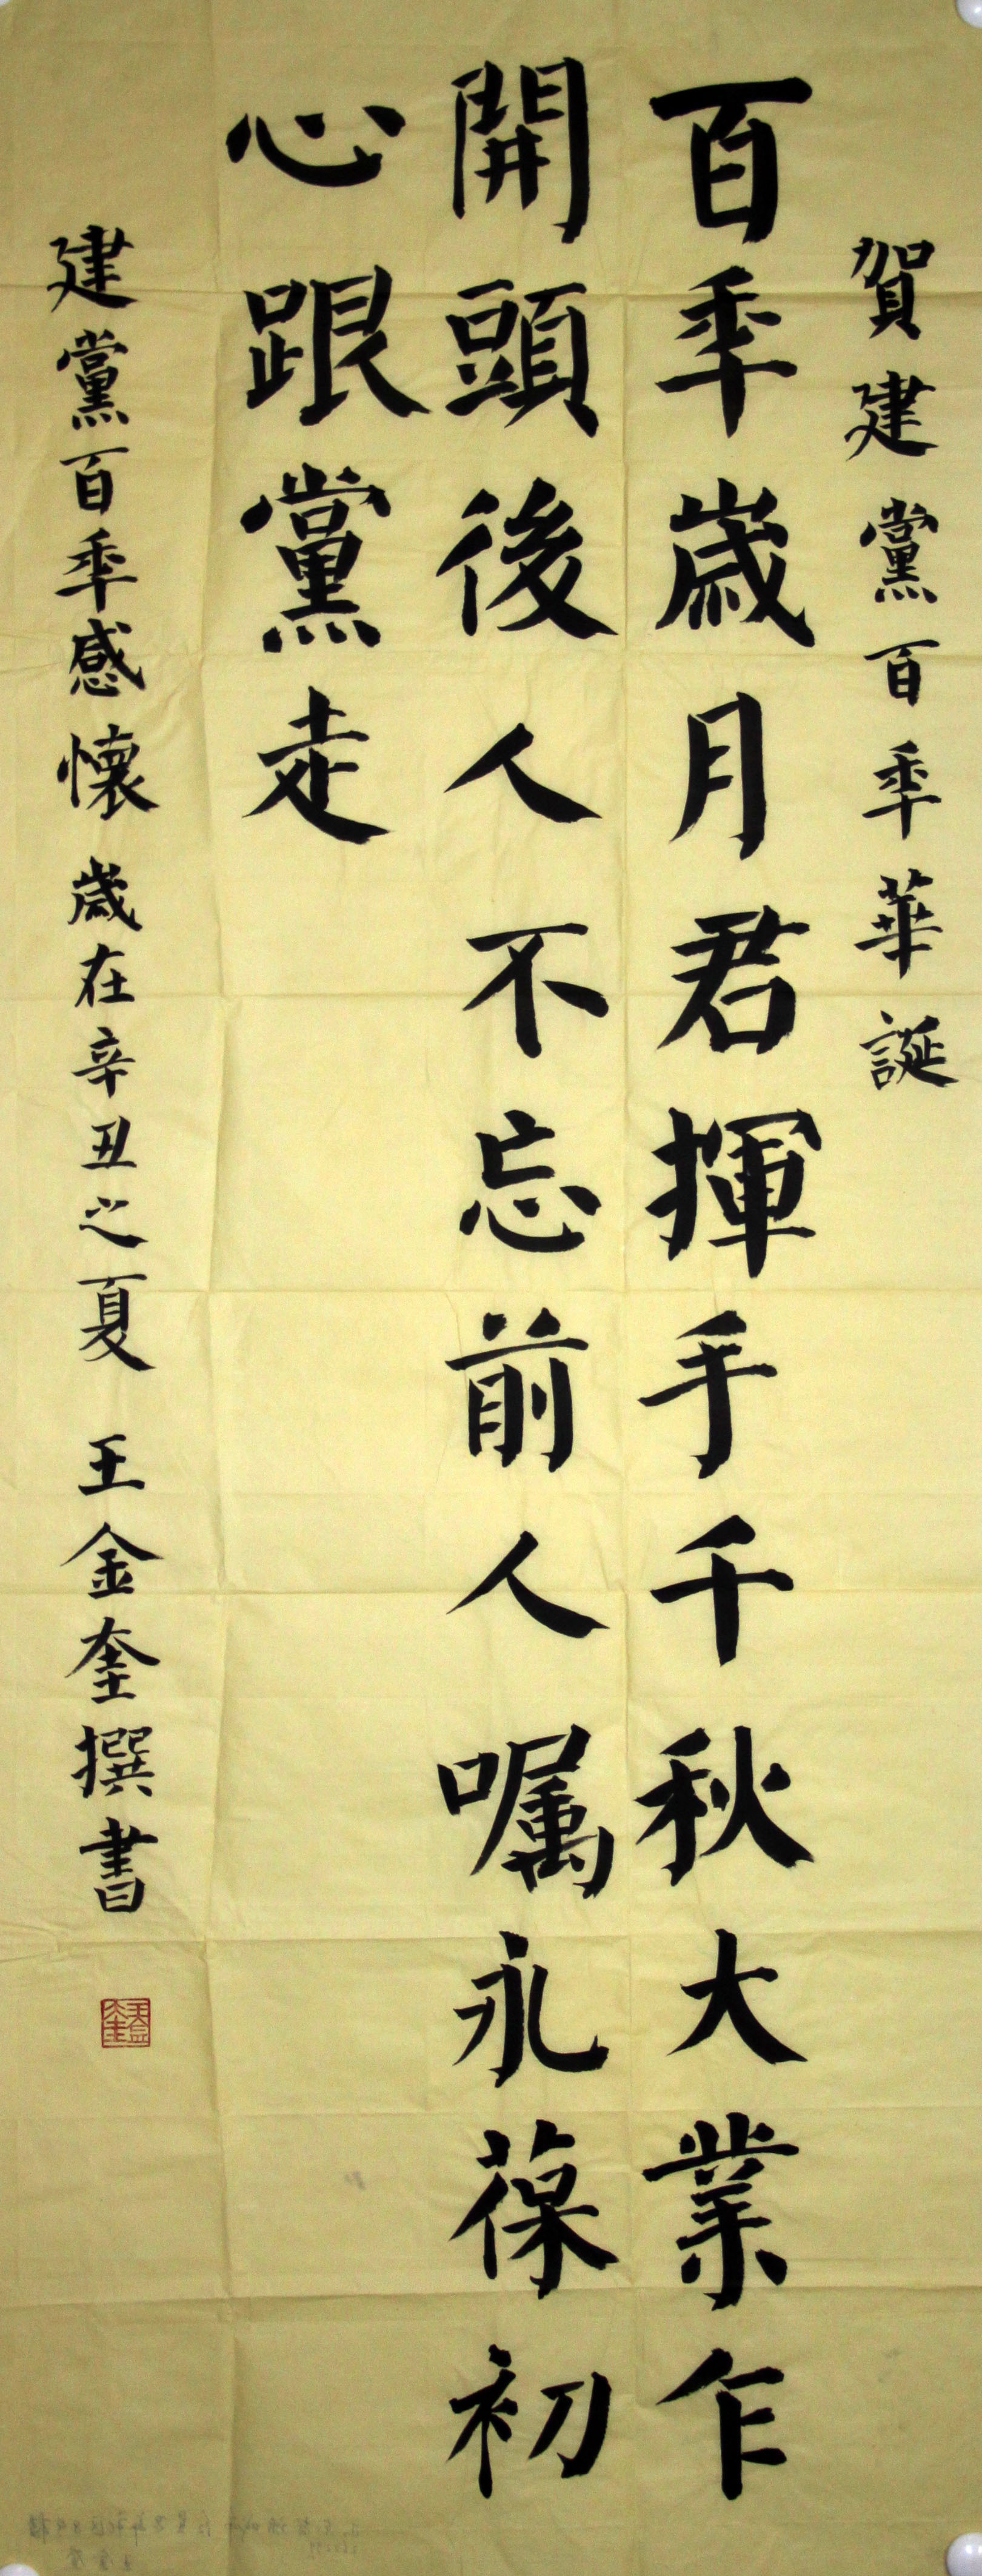 賀建黨百年華誕
百年歲月君揮手千秋大業乍
開頭後人不忘前人囑永葆初
心跟黨走
建黨百年感懷 歲在辛丑之夏 王金奎撰書